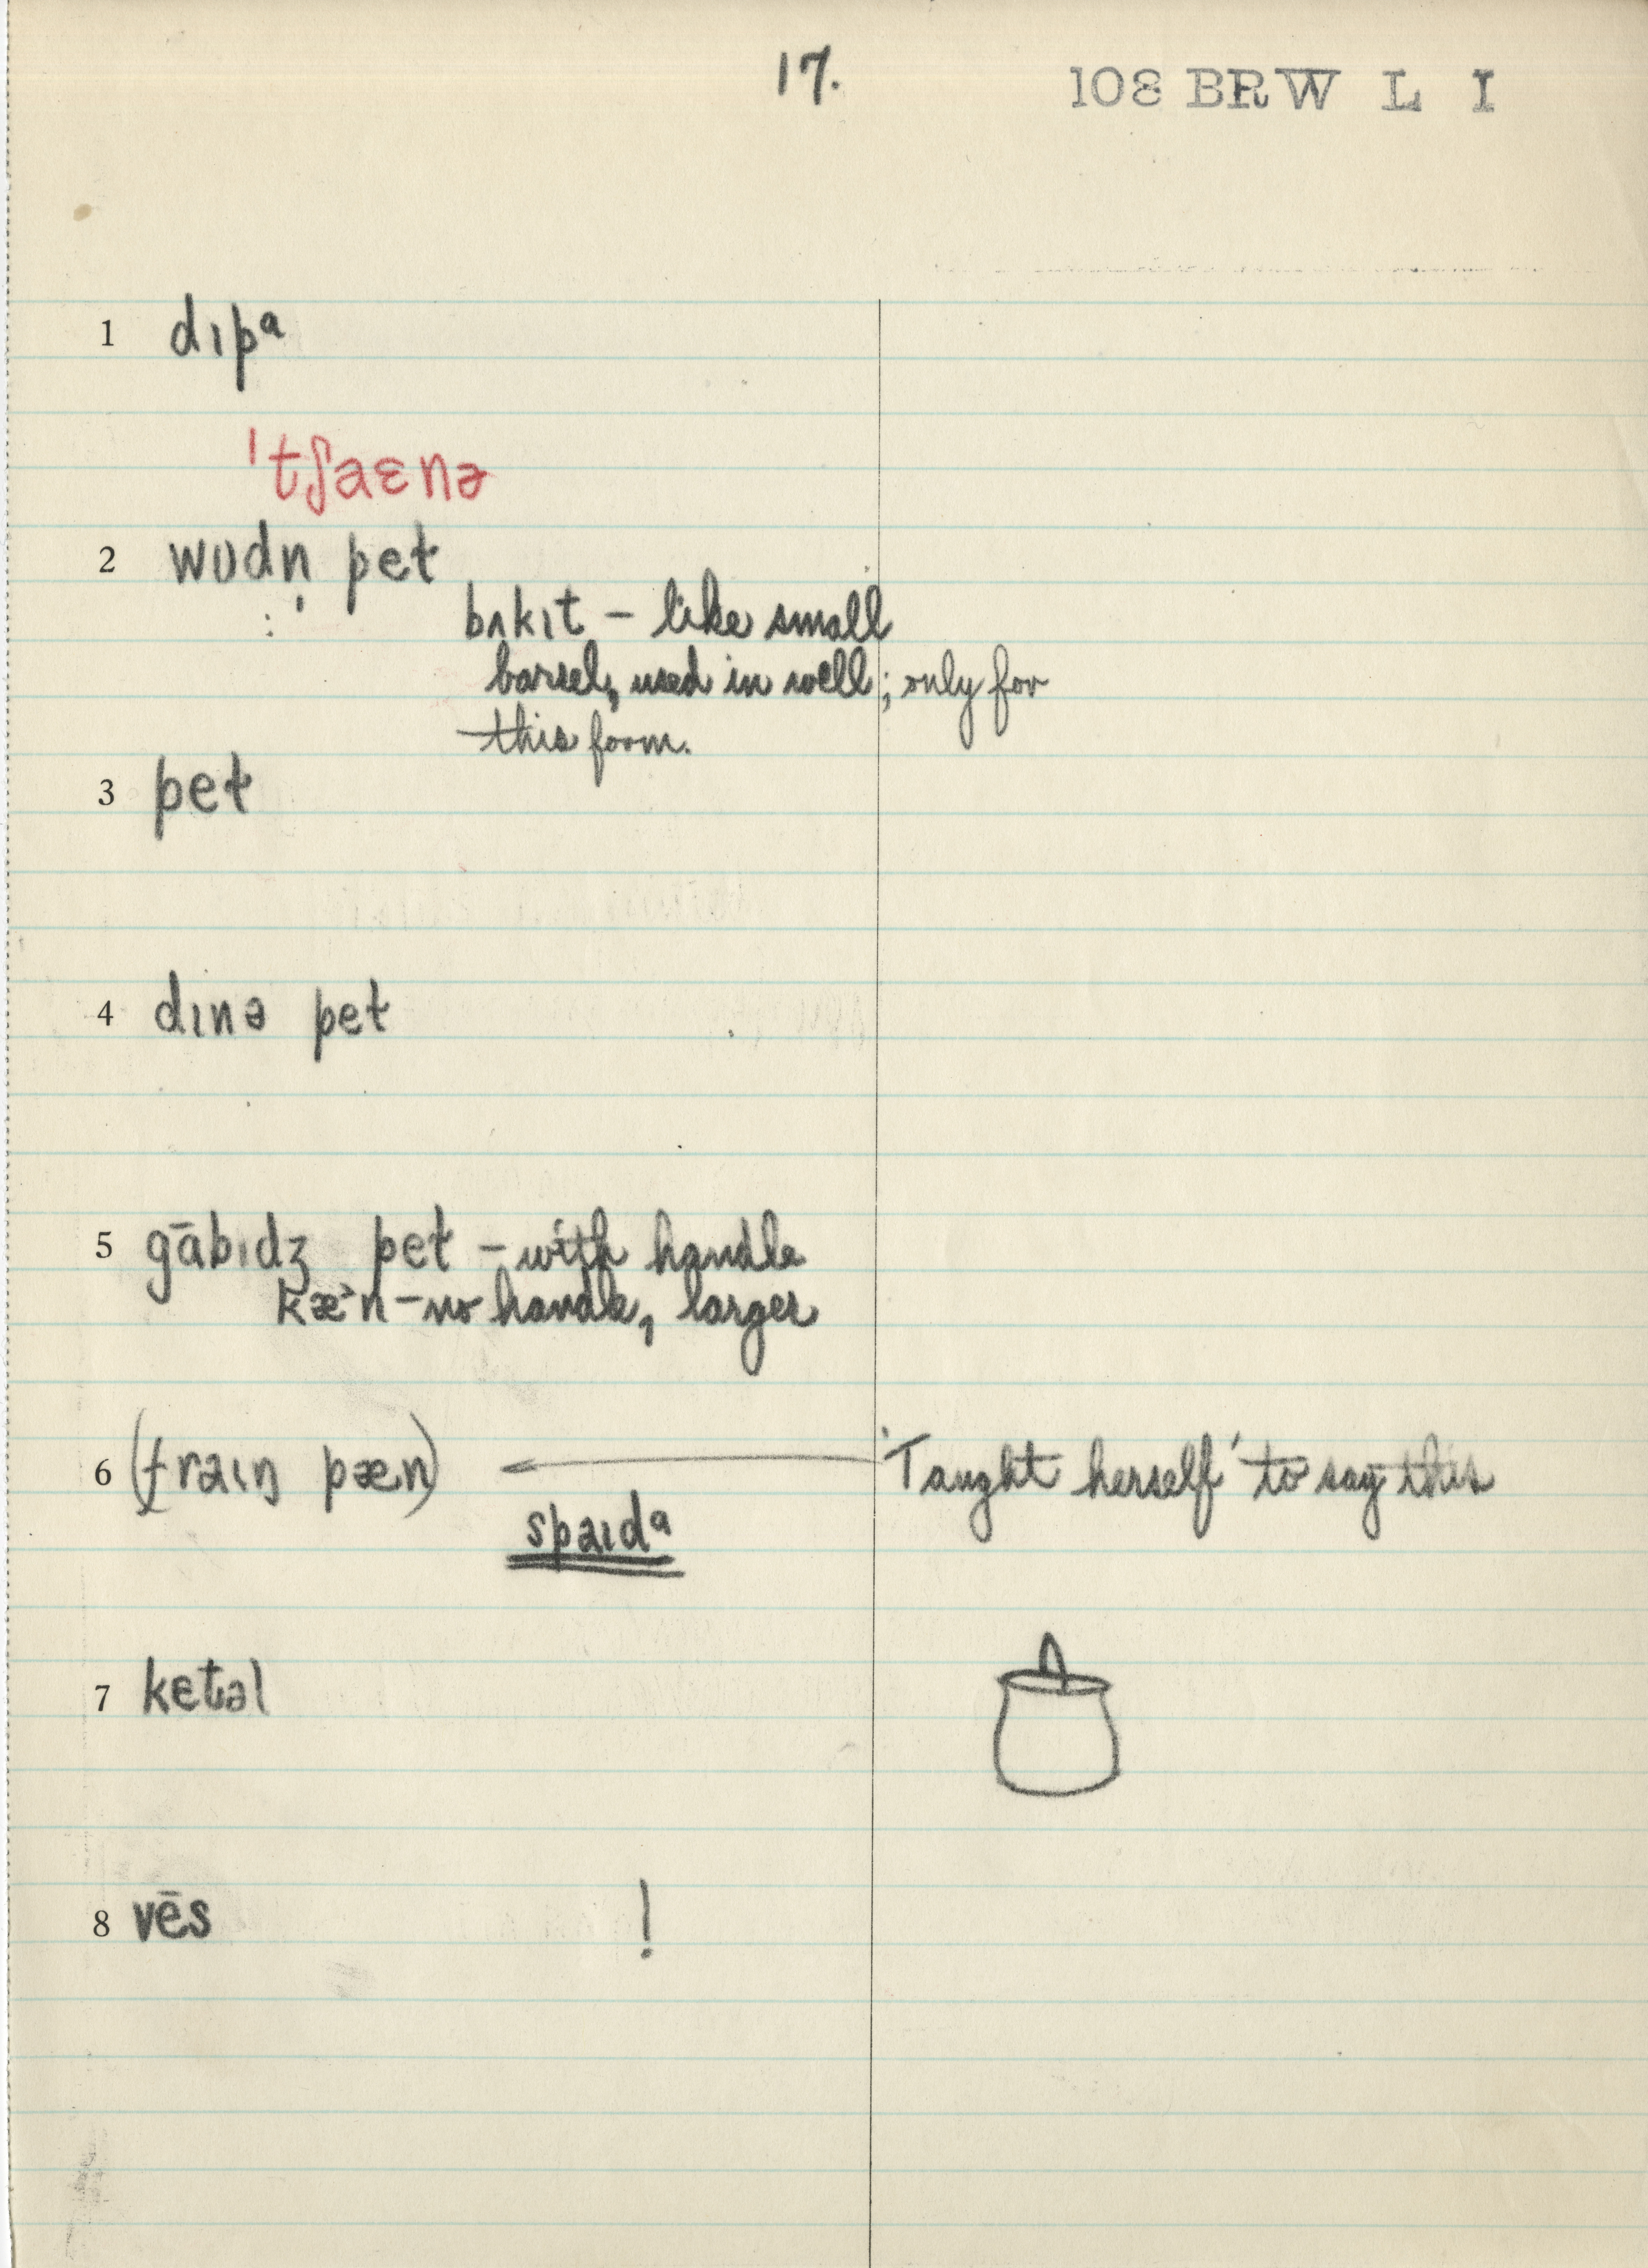 17. 108 BRW L I
1 dɪpᵃ
'tʃaɛnə
2 wʊdn̩ pet
bʌkɪt – like small
barrel, used in well; only for
this form.
3 pet
4 dɪnə pet
5 gābɪdʒ pet – with handle
kæ˃n – no handle, larger
6 (fraɪŋ pæn) ← 'Taught herself' to say this
spaɪdᵃ
7 ketəl
8 vēs !